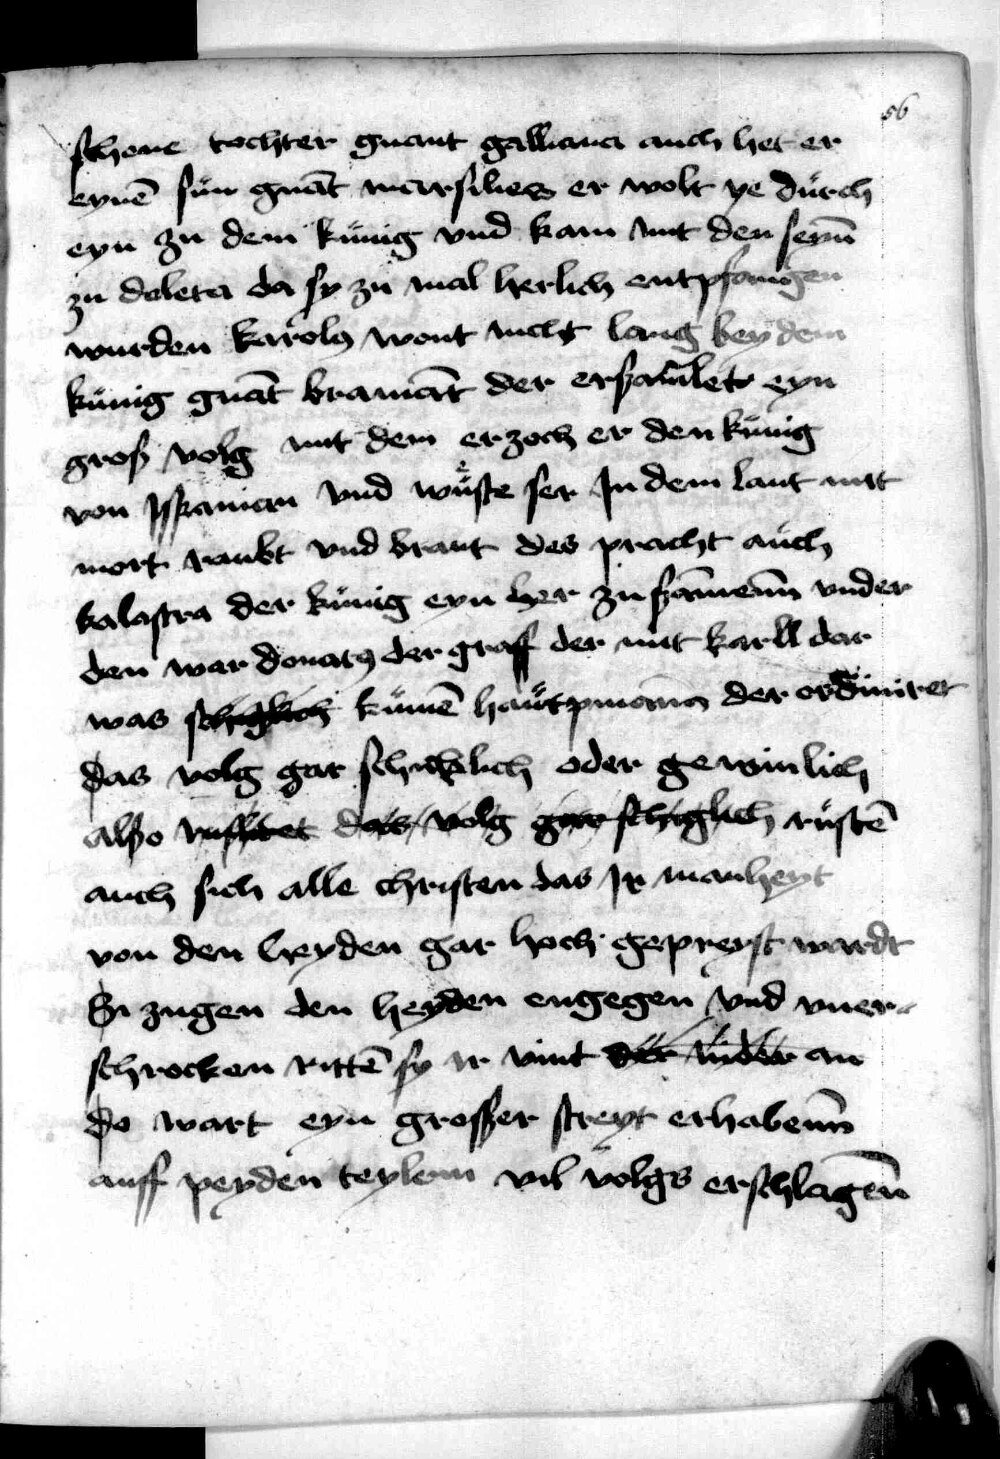 56
schone tochter gnant galliana auch het er
eynē sün gnāt marsilies er wolt ye dürch
eyn zu dem künig vnd kam mit den seyn̄
zu doleta da sy zu mal herlich entpfangen
wurden karolꝰ wont nicht lang bey dem
künig gnāt bramāt der ersam̄let eyn
groß volg mit dem erzoch er den künig
von Jspanian vnd wüste ser Jn dem lant mit
mort raubt vnd brant des pracht aüch
kalastra der künig eyn her zu sāmenn̄ vnder
den war donatꝰ der graff der mit karll dar
was schiglich kümē haütpman̄ der ordiniret
das volg gar schicklich oder gewinlich
also das volg gar schiglich rüstē
auch sich alle christen das Jr manheyt
von den heyden gar hoch gepreyst wardt
Si zugen den heyden engegen vnd vner
schrocken rittē sy ir vint der an
do wart eyn grosser streyt erhabenn̄
auff peyden teylenn vil volgs erschlagen̄